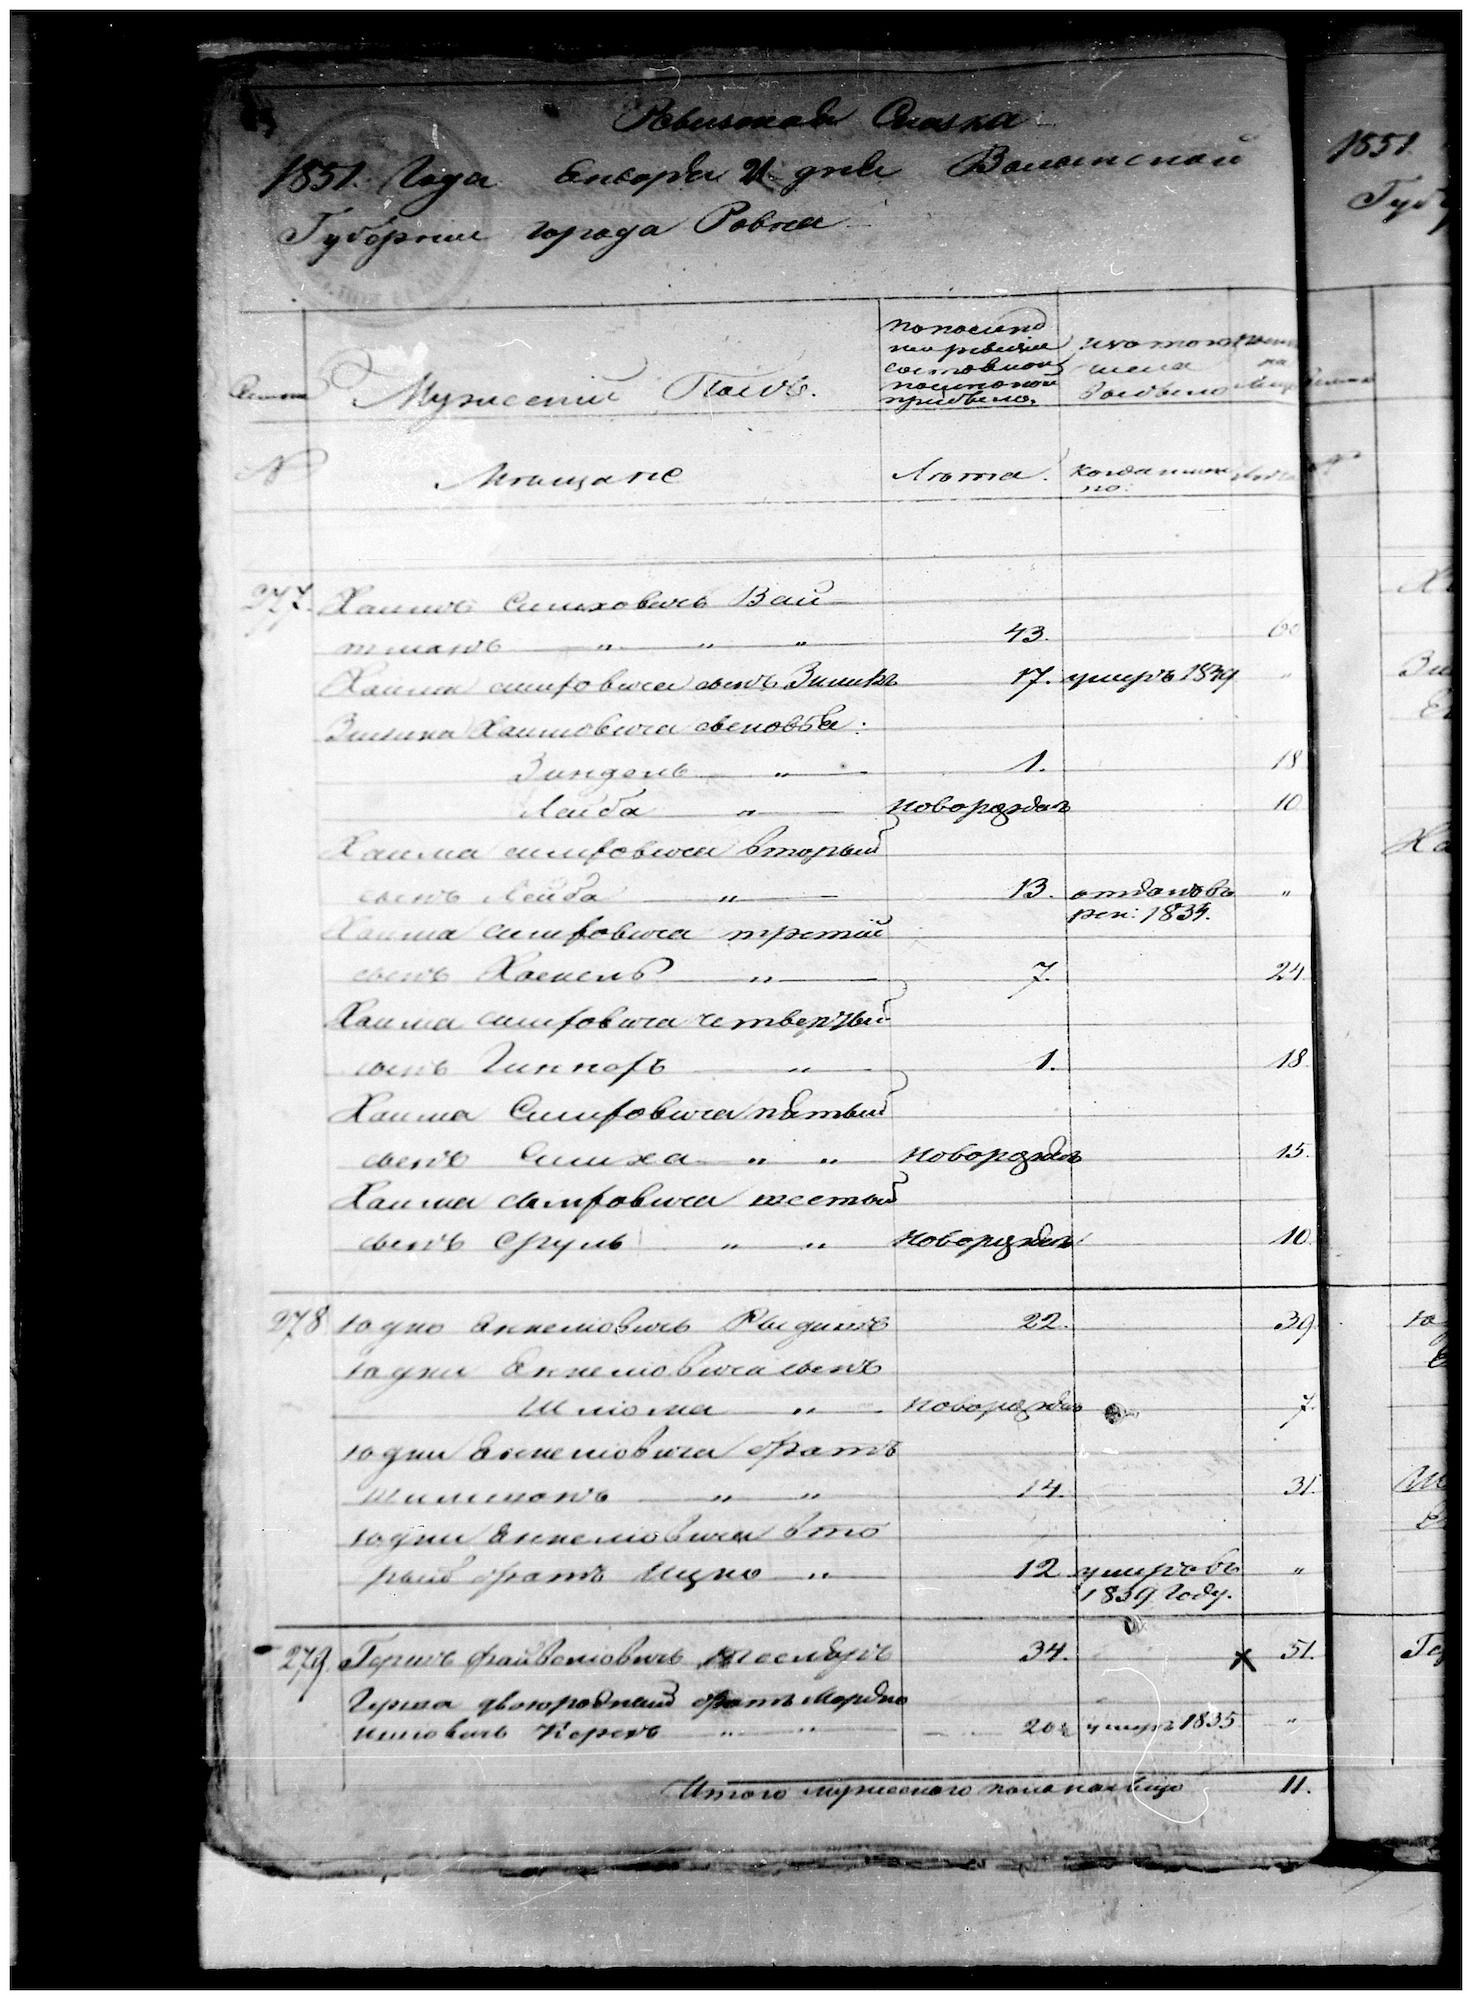 Ревизская Сказка
1851. Года Генваря 21 дня Волынской
Губернии города Ровна
1851.
Семьи
Мужеский Полъ.
по последней ревизіи состояло и после оной прибыло.
изъ того числа выбыло
ныне на лицо
№
Мещане
Лѣта.
когда именно:
Лѣта
277. Хаимъ Симховичъ Вай-
тманъ " " " 43. 60
Хаима Симховича сынъ Зимель 17. умеръ 1839 "
Зимеля Хаимовича сыновья:
Зиндель " 1. 18
Лейба " новорожден 10
Хаима Симховича вторый
сынъ Лейба " 13. отданъ въ рек: 1834. "
Хаима Симховича третій
сынъ Хаскель " 7. 24.
Хаима Симховича четвертый
сынъ " 1. 18.
Хаима Симховича пятый
сынъ Симха " " новорожден 15.
Хаима Симховича шестый
сынъ Сруль " " новорожден 10.
278 Юдко Янкелювичъ 22. 39.
Юдки Янкелювича сынъ
Шлиома " новорожден 7.
Юдки Янкелювича братъ
" " 14. 31.
Юдки Янкелювича вто
рый братъ Ицко " 12 умеръ въ 1839 Году. "
279. Гершъ Файвелювичъ 34. 51.
Герша двоюродный братъ Мордко
" " 20 умеръ 1835 "
Итого мужеского пола на лицо 11.